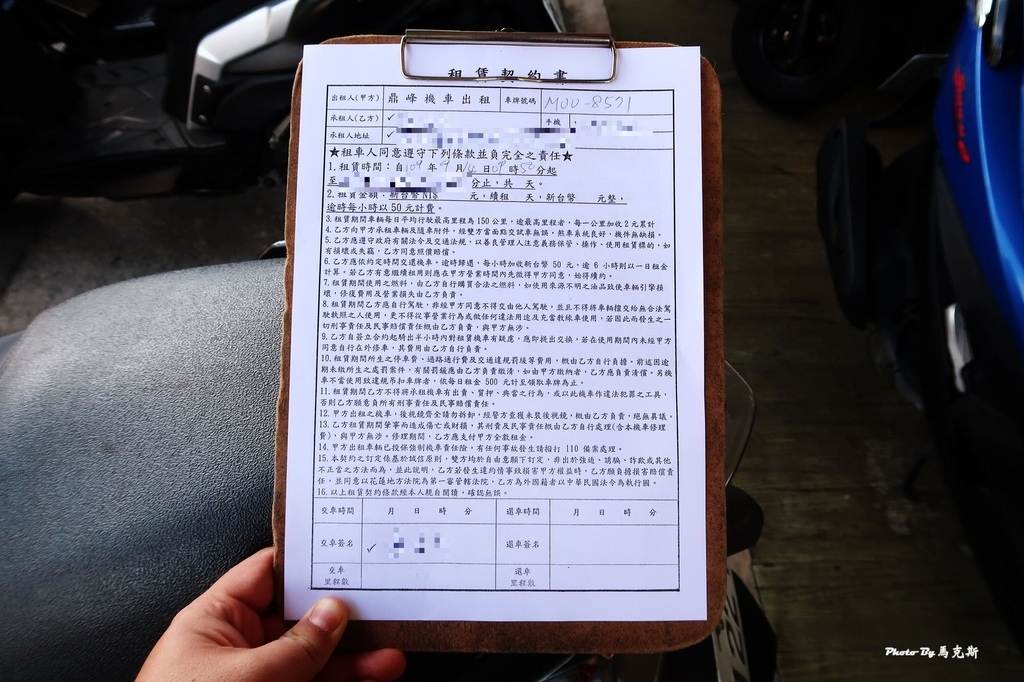 租賃契約書
出租人(甲方) 鼎峰機車出租 車牌號碼 MOU-8521
承租人(乙方) ✓ 手機
承租人地址 ✓
★租車人同意遵守下列條款並負完全之責任★
1.租賃時間：自104年9月 日09時50分起
至 分止，共 天。
2.租賃金額：新台幣NT$ 元，續租 天，新台幣 元整，
逾時每小時以50元計費。
3.租賃期間車輛每日平均行駛最高里程為150公里，逾最高里程者，每一公里加收2元累計
4.乙方向甲方承租車輛及隨車附件，經雙方當面點交試車無誤，煞車系統良好，機件無缺損。
5.乙方應遵守政府有關法令及交通法規，以善良管理人注意義務保管、操作、使用租賃標的，如
有損壞或失竊，乙方同意照價賠償。
6.乙方應依約定時間交還機車。逾時歸還，每小時加收新台幣50元，逾6小時則以一日租金
計算。若乙方有意繼續租用則應在甲方營業時間內先徵得甲方同意，始得續約。
7.租賃期間使用之燃料，由乙方自行購買合法之燃料，如使用來源不明之油品致使車輛引擎損
壞，修復費用及營業損失由乙方負責。
8.租賃期間乙方應自行駕駛，非經甲方同意不得交由他人駕駛，並且不得將車輛擅交給無合法駕
駛執照之人使用，更不得從事營業行為或做任何違法用途及充當教練車使用，若因此而發生之一
切刑事責任及民事賠償責任概由乙方負責，與甲方無涉。
9.乙方自簽立合約起騎出半小時內對租賃機車有疑慮，應即提出交換。若在使用期間內未經甲方
同意自行在外修車，其費用由乙方自行負責。
10.租賃期間所生之停車費、過路通行費及交通違規罰緩等費用，概由乙方自行負擔。前述因逾
期未繳所生之處罰案件，有關罰鍰應由乙方負責繳清，如由甲方繳納者，乙方應負責清償。另機
車不當使用致違規吊扣車牌者，依每日租金500元計至領取車牌為止。
11.租賃期間乙方不得將承租機車有出賣、質押、典當之行為，或以此機車作違法犯罪之工具，
否則乙方願意負所有刑事責任及民事賠償責任。
12.甲方出租之機車，後視鏡齊全請勿拆卸，經警方查獲未裝後視鏡，概由乙方負責，絕無異議。
13.乙方租賃期間肇事而造成傷亡或財損，其刑責及民事責任概由乙方自行處理(含本機車修理
費)，與甲方無涉。修理期間，乙方應支付甲方全數租金。
14.甲方出租車輛已投保強制機車責任險，有任何事故發生請撥打110備案處理。
15.本契約之訂定係基於誠信原則，雙方均於自由意願下訂定，非出於強迫、誘騙、詐欺或其他
不正當之方法而為，並此說明，乙方若發生違約情事致損害甲方權益時，乙方願負擔損害賠償責
任，並同意以花蓮地方法院為第一審管轄法院，乙方為外國籍者以中華民國法令為執行國。
16.以上租賃契約條款經本人親自閱讀，確認無誤。
交車時間 月 日 時 分 還車時間 月 日 時 分
交車簽名 ✓ 還車簽名
交車里程數 還車里程數
Photo By 馬克斯